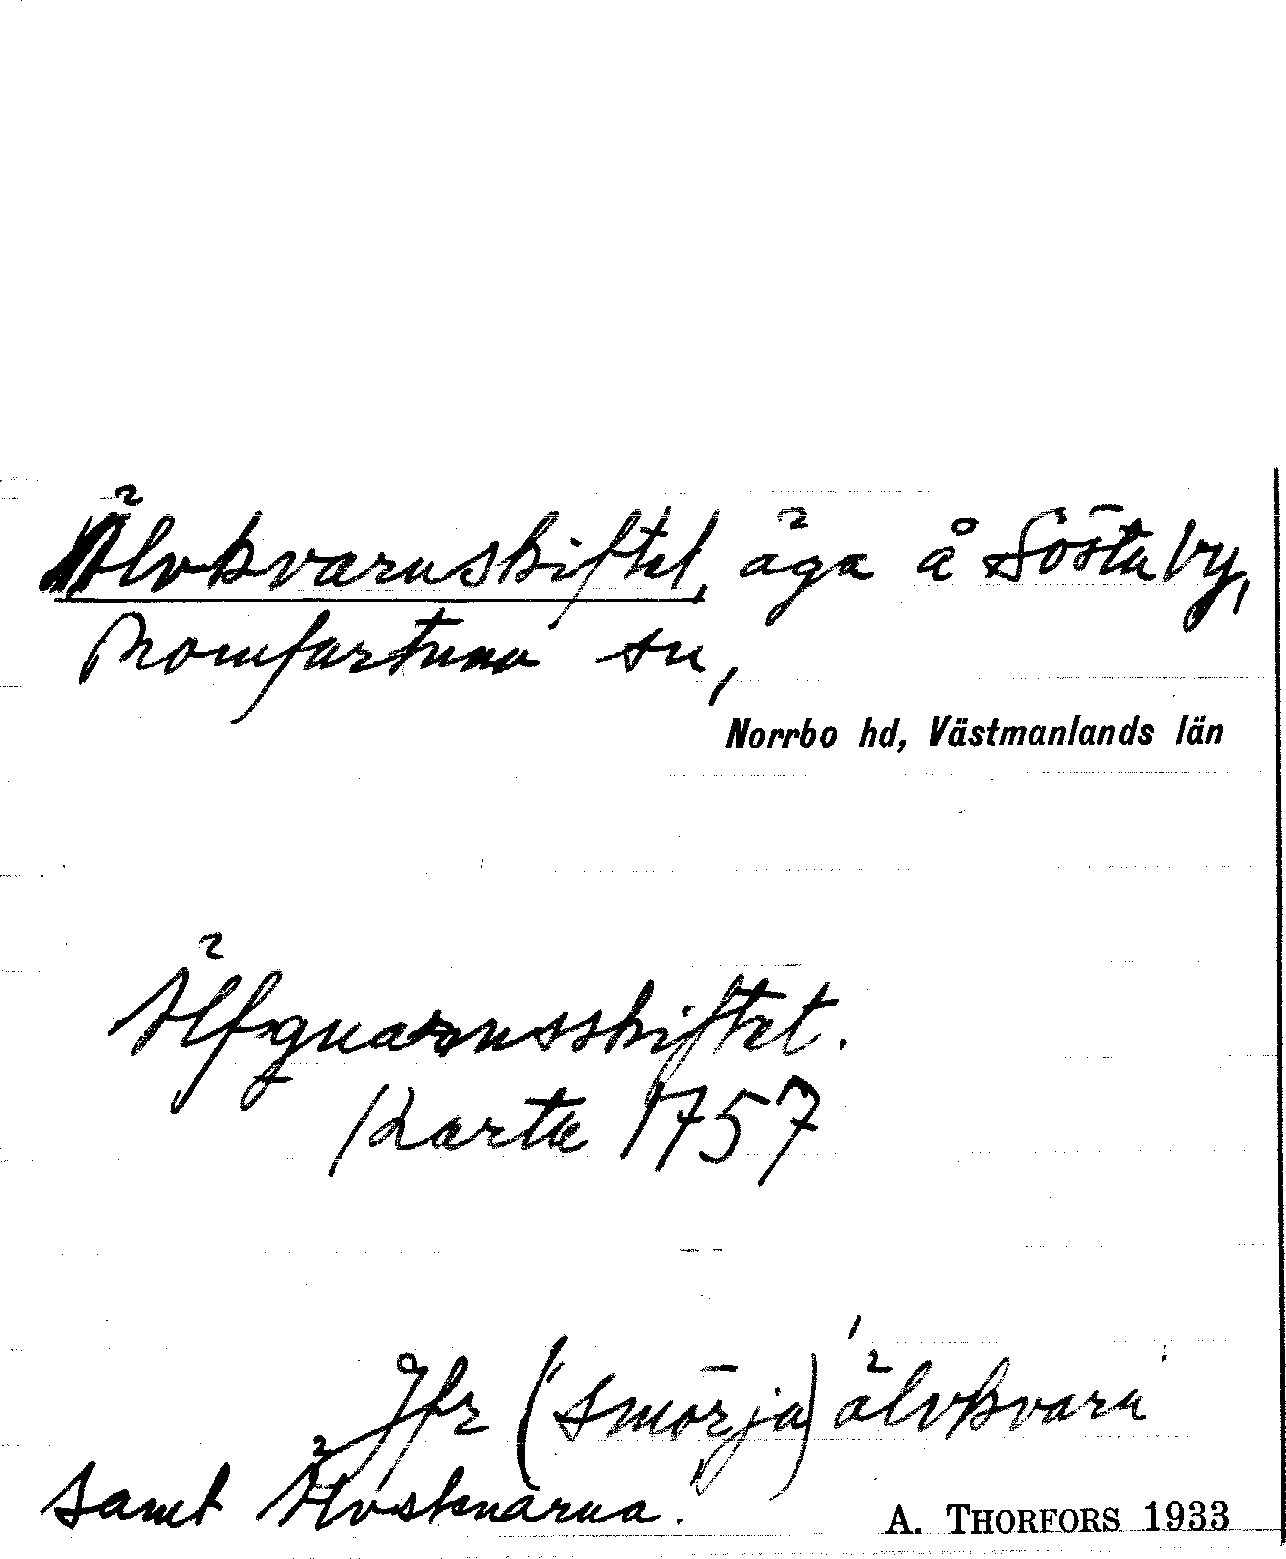 Älvkvarnskiftet, äga å Sösta by,
Romfartuna sn,
Norrbo hd, Västmanlands län
Älfquarnsskiftet.
Karta 1757
Jfr (smörja) älvkvarn
samt Älvstenarna.
A. THORFORS 1933